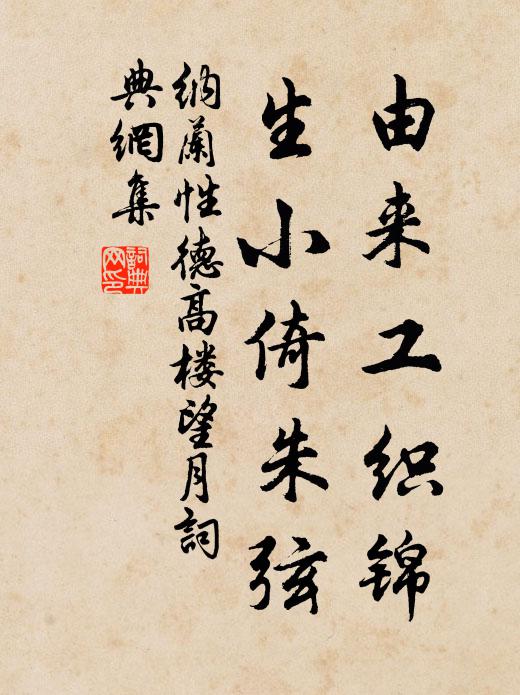 由来工织锦
生小倚朱弦
纳蘭性德高楼望月詞
典網集
詞典網印